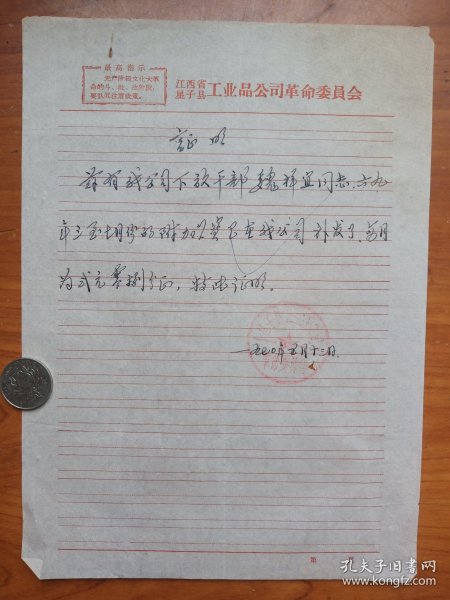 最高指示
无产阶级文化大革
命的斗、批、改阶段,
要认真注意政策。
江西省
星子县
工业品公司革命委員会
证明
兹有我公司下放干部 祥宜同志,六九
年 至七月份的附加工资已在我公司补发了,每月
为弍元零捌分正,特此证明。
一九七〇年五月十三日
第 頁
孔夫子旧书网
www.kongfz.com